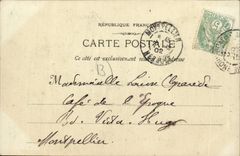 RÉPUBLIQUE FRANÇAISE
CARTE POSTALE
Ce côté est exclusivement réservé à l'adresse
MONTPELLIER
02
B
Mademoiselle Louise
Café de l'Époque
Bd. Victor Hugo
Montpellier